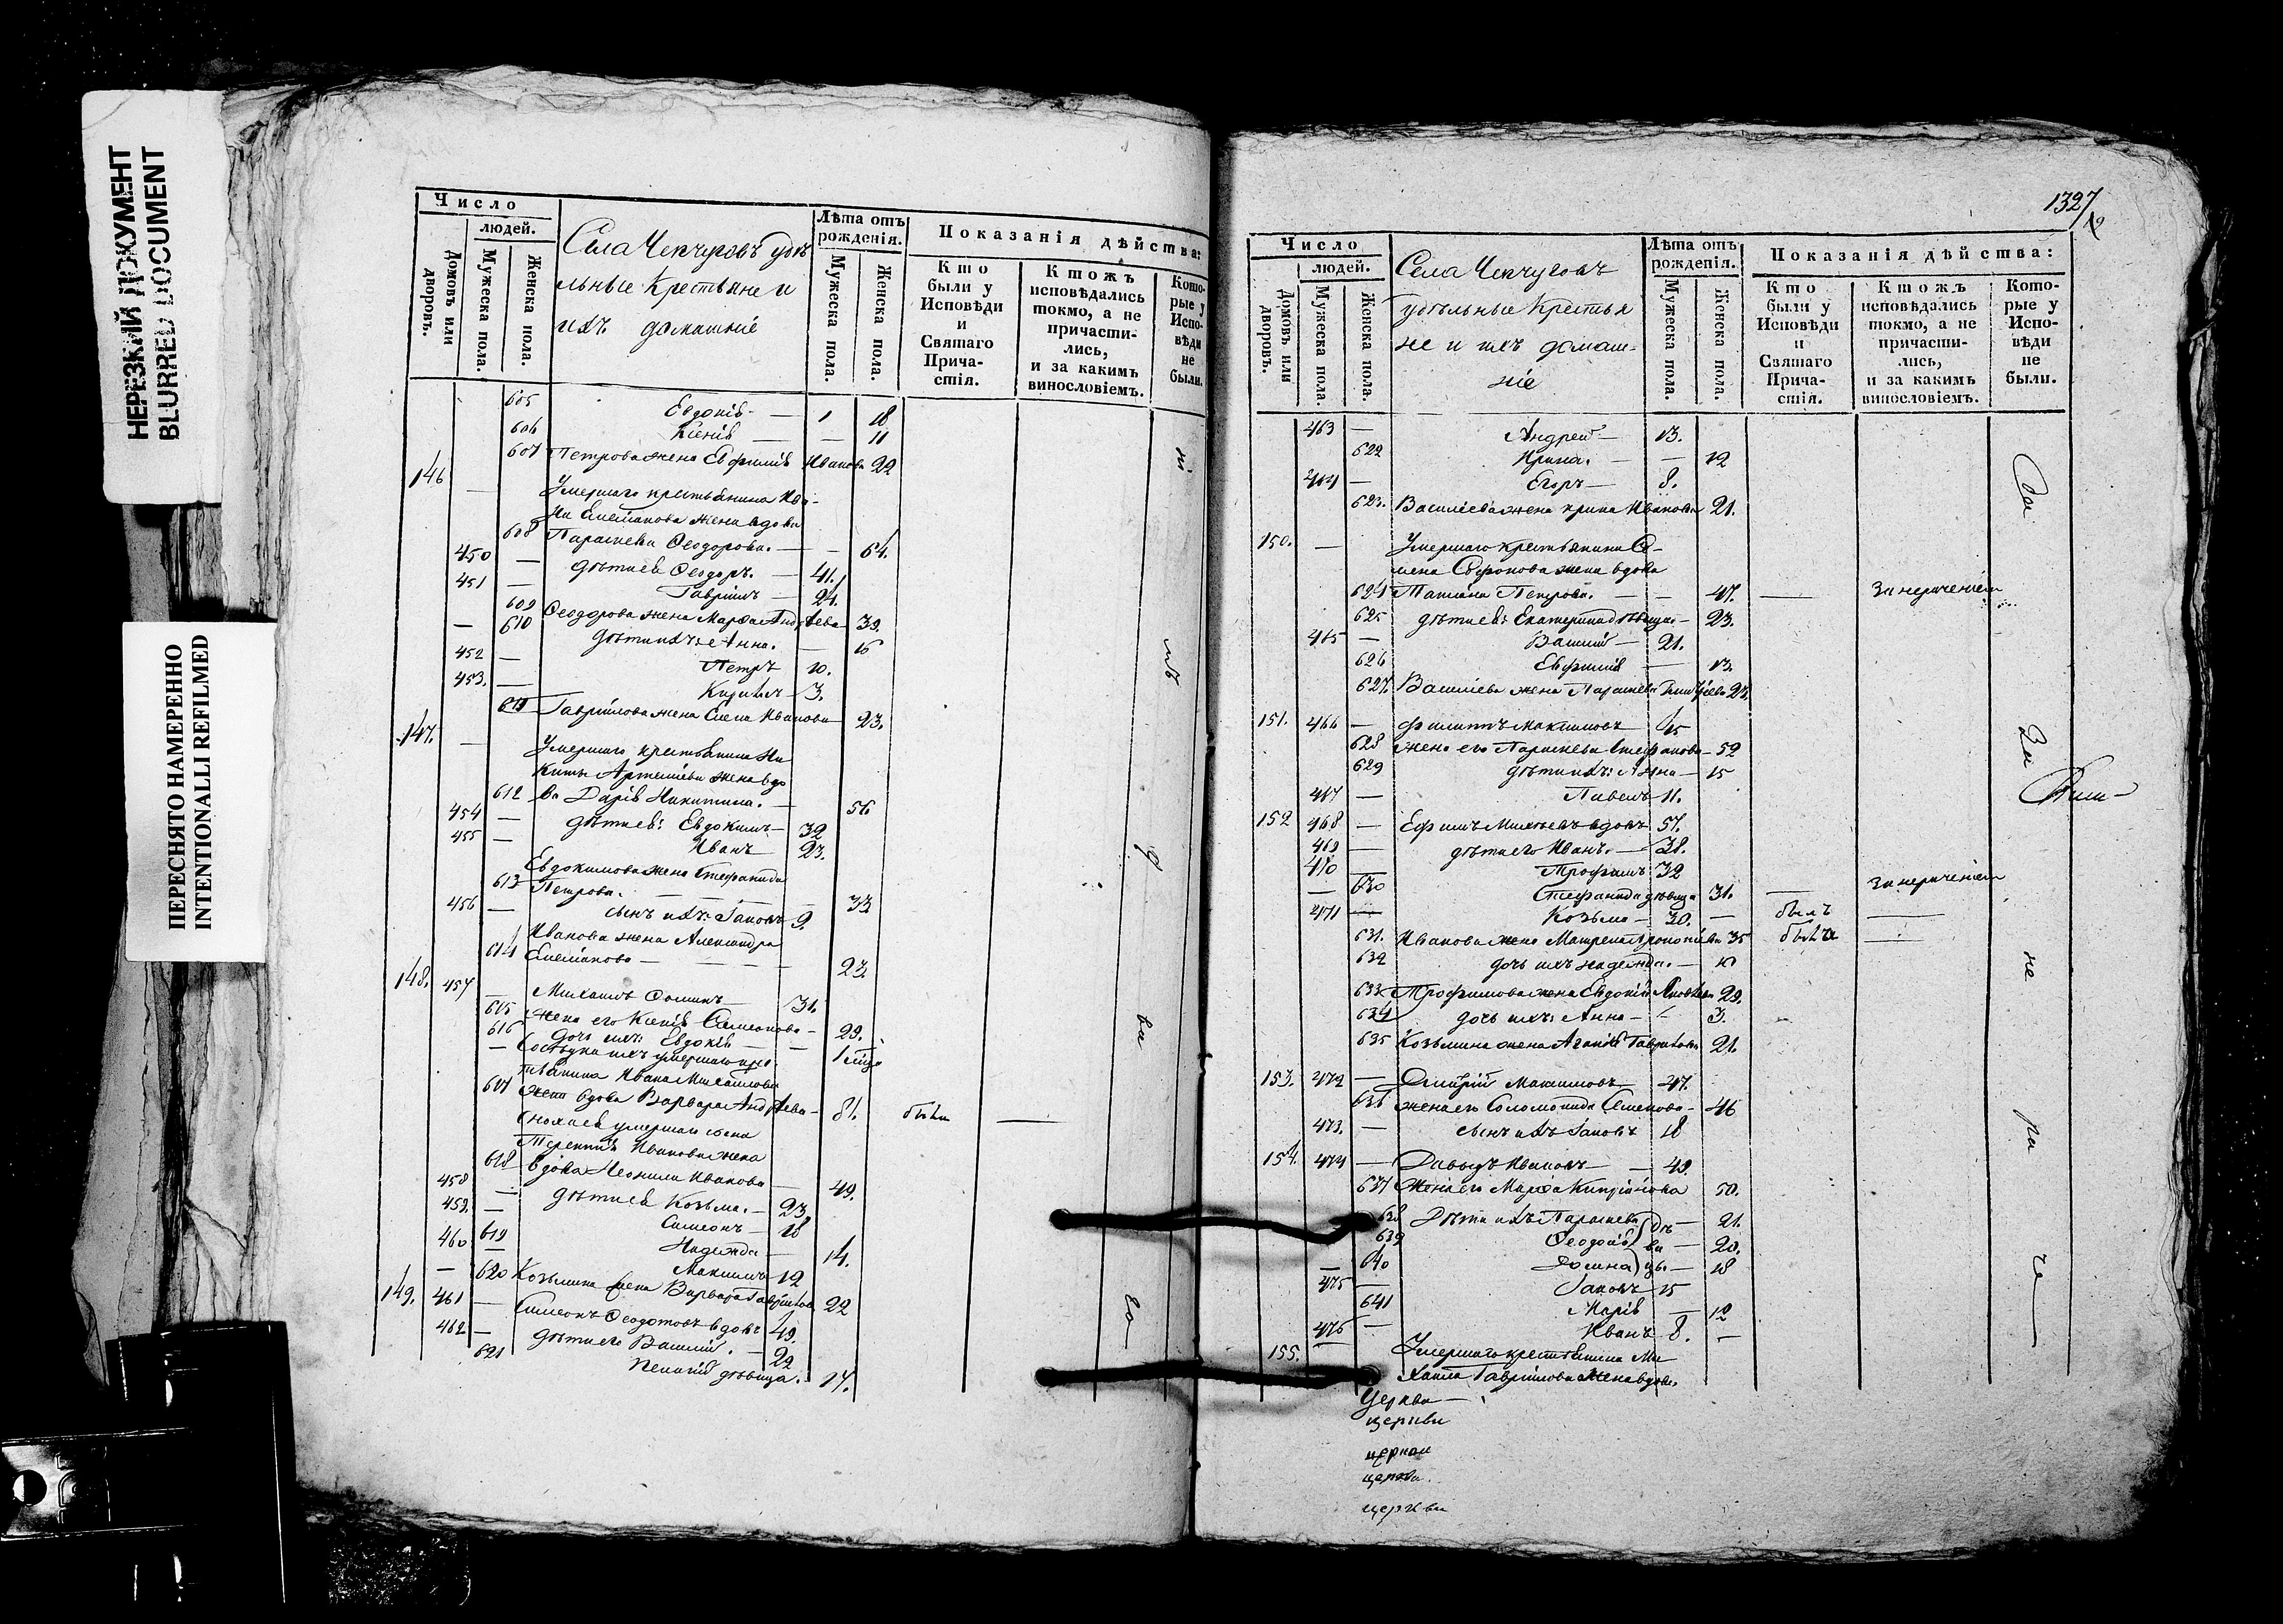 НЕРЕЗКИЙ ДОКУМЕНТ
BLURRED DOCUMENT
ПЕРЕСНЯТО НАМЕРЕННО
INTENTIONALLI REFILMED
Число
людей.
Домовъ или дворовъ.
Мужеска пола.
Женска пола.
Села Чепчуговъ удѣ
льные Крестьяне и
ихъ домашніе
Лѣта отъ рожденія.
Мужеска пола.
Женска пола.
Показанія дѣйства:
Кто были у Исповѣди и Святаго Прича-стія.
Ктожъ исповѣдались токмо, а не причасти-лись, и за какимъ винословіемъ.
Кото-рые у Испо-вѣди не были.
605 Евдокія — 18
606 Ксенія — — 11
607 Петрова жена Евфимія Иванова 22
146 — Умершаго крестьянина Ива-
на жена вдова
608 Параскева Ѳеодорова. — — 64.
450 — дѣти ея Ѳеодоръ. — 41.
451 — Гавріилъ — 24.
609 Ѳеодорова жена Марѳа Андреева 39.
— 610 дѣти ихъ: Анна. — 16
452 — Петръ 10.
453. — 3.
611 Гаврилова жена Елена Иванова 23.
147. — Умершаго крестьянина Ни
киты Артемьева жена вдо
612 ва Дарія Никитина. — 56
454 — дѣти ея: Евдокимъ — 32
455 — Иванъ 23.
Евдокимова жена Стефанида
613 Петрова. — — 33
456 — сынъ ихъ: Іаковъ 9.
Иванова жена Александра
614 — — — — 23
148. 457 — Михаилъ Ѳоминъ — 31.
615 жена его Ксенія Симеонова — 29.
616 дочь ихъ Евдокія — —
— Сосѣдка ихъ умершаго кре-
стьянина Ивана Михайлова
617 жена вдова Варвара Андреева — 81. была —
Сноха ея умершаго сына
Терентія Иванова жена
618 вдова Неонила Иванова — 49.
458 — дѣти ея Козьма. — 23
459. — Симеонъ — 18
619 Надежда — 14.
460 — Максимъ 12
— 620 Козьмина жена Варвара Гаврилова 22
149. 461 — Симеонъ Ѳеодотовъ вдовъ 49.
462 — дѣти его Василій. — 22
621 дѣвица. 17.
1327
Число
людей.
Домовъ или дворовъ.
Мужеска пола.
Женска пола.
Села Чепчуговъ
удѣльные Крестья
не и ихъ домаш-
ніе
Лѣта отъ рожденія.
Мужеска пола.
Женска пола.
Показанія дѣйства:
Кто были у Исповѣди и Святаго Прича-стія.
Ктожъ исповѣдались токмо, а не причасти-лись, и за какимъ винословіемъ.
Кото-рые у Испо-вѣди не были.
463 — Андрей — 13.
622 Ирина. — — 12
464 — Егоръ — 8.
623. Васильева жена Ирина Иванова 21.
150. — Умершаго крестьянина Се-
мена жена вдова
624 Татіана Петрова. — — 47. — за нерачением
625 дѣти ея: Екатерина дѣвица — 23.
465 — Василій — 21.
626 Евфимія — 13.
627. Васильева жена Параскева 23.
151. 466 — Филиппъ Максимовъ 65
628 жена его Параскева Стефанова — 52
629 дѣти ихъ: Анна — 15
467 — Павелъ 11.
152 468 — Ефимъ вдовъ 57.
469 — дѣти его Иванъ. — 38.
470 — Трофимъ 32
— 630 Стефанида дѣвица 31. — за нерачением
471 — Козьма — 30. — былъ —
631. Иванова жена Матрена Прокопьева 35 была —
632 дочь ихъ Надежда. — 10
633 Трофимова жена Евдокія Яковлева 29.
634 дочь ихъ: Анна — 3.
635 Козьмина жена Агафія Гаврилова 21.
153. 472 — Дмитрій Максимовъ — 47.
636 жена его Соломонида Семенова — 46
473. — сынъ ихъ Іаковъ 18
154. 474 — Давыдъ Ивановъ — — 49.
637 Жена его Марѳа Кипріянова 50.
638 Дѣти ихъ: Параскева дѣ — 21.
639 Ѳеодосія ви — 20.
— 640 Домна цы. — 18
475 — Іаковъ 15
641 Марія — 12
476 — Иванъ 8. —
155. — Умершаго крестьянина Ми
хаила Гаврилова жена вдова.
за
не
ра
че
Церква —
церкви
церкви
церкви
церкви